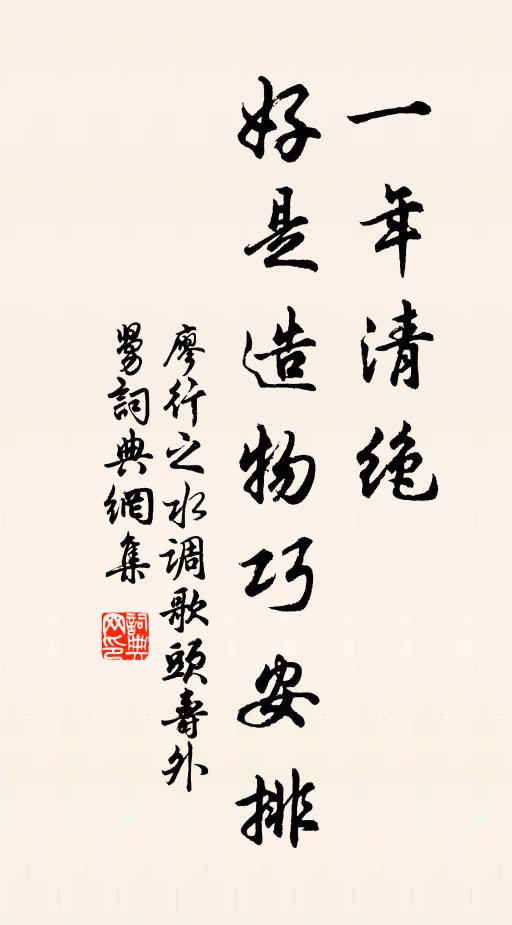 一年清绝
好是造物巧安排
廖行之水调歌頭壽外
舅詞典網集
詞典网印